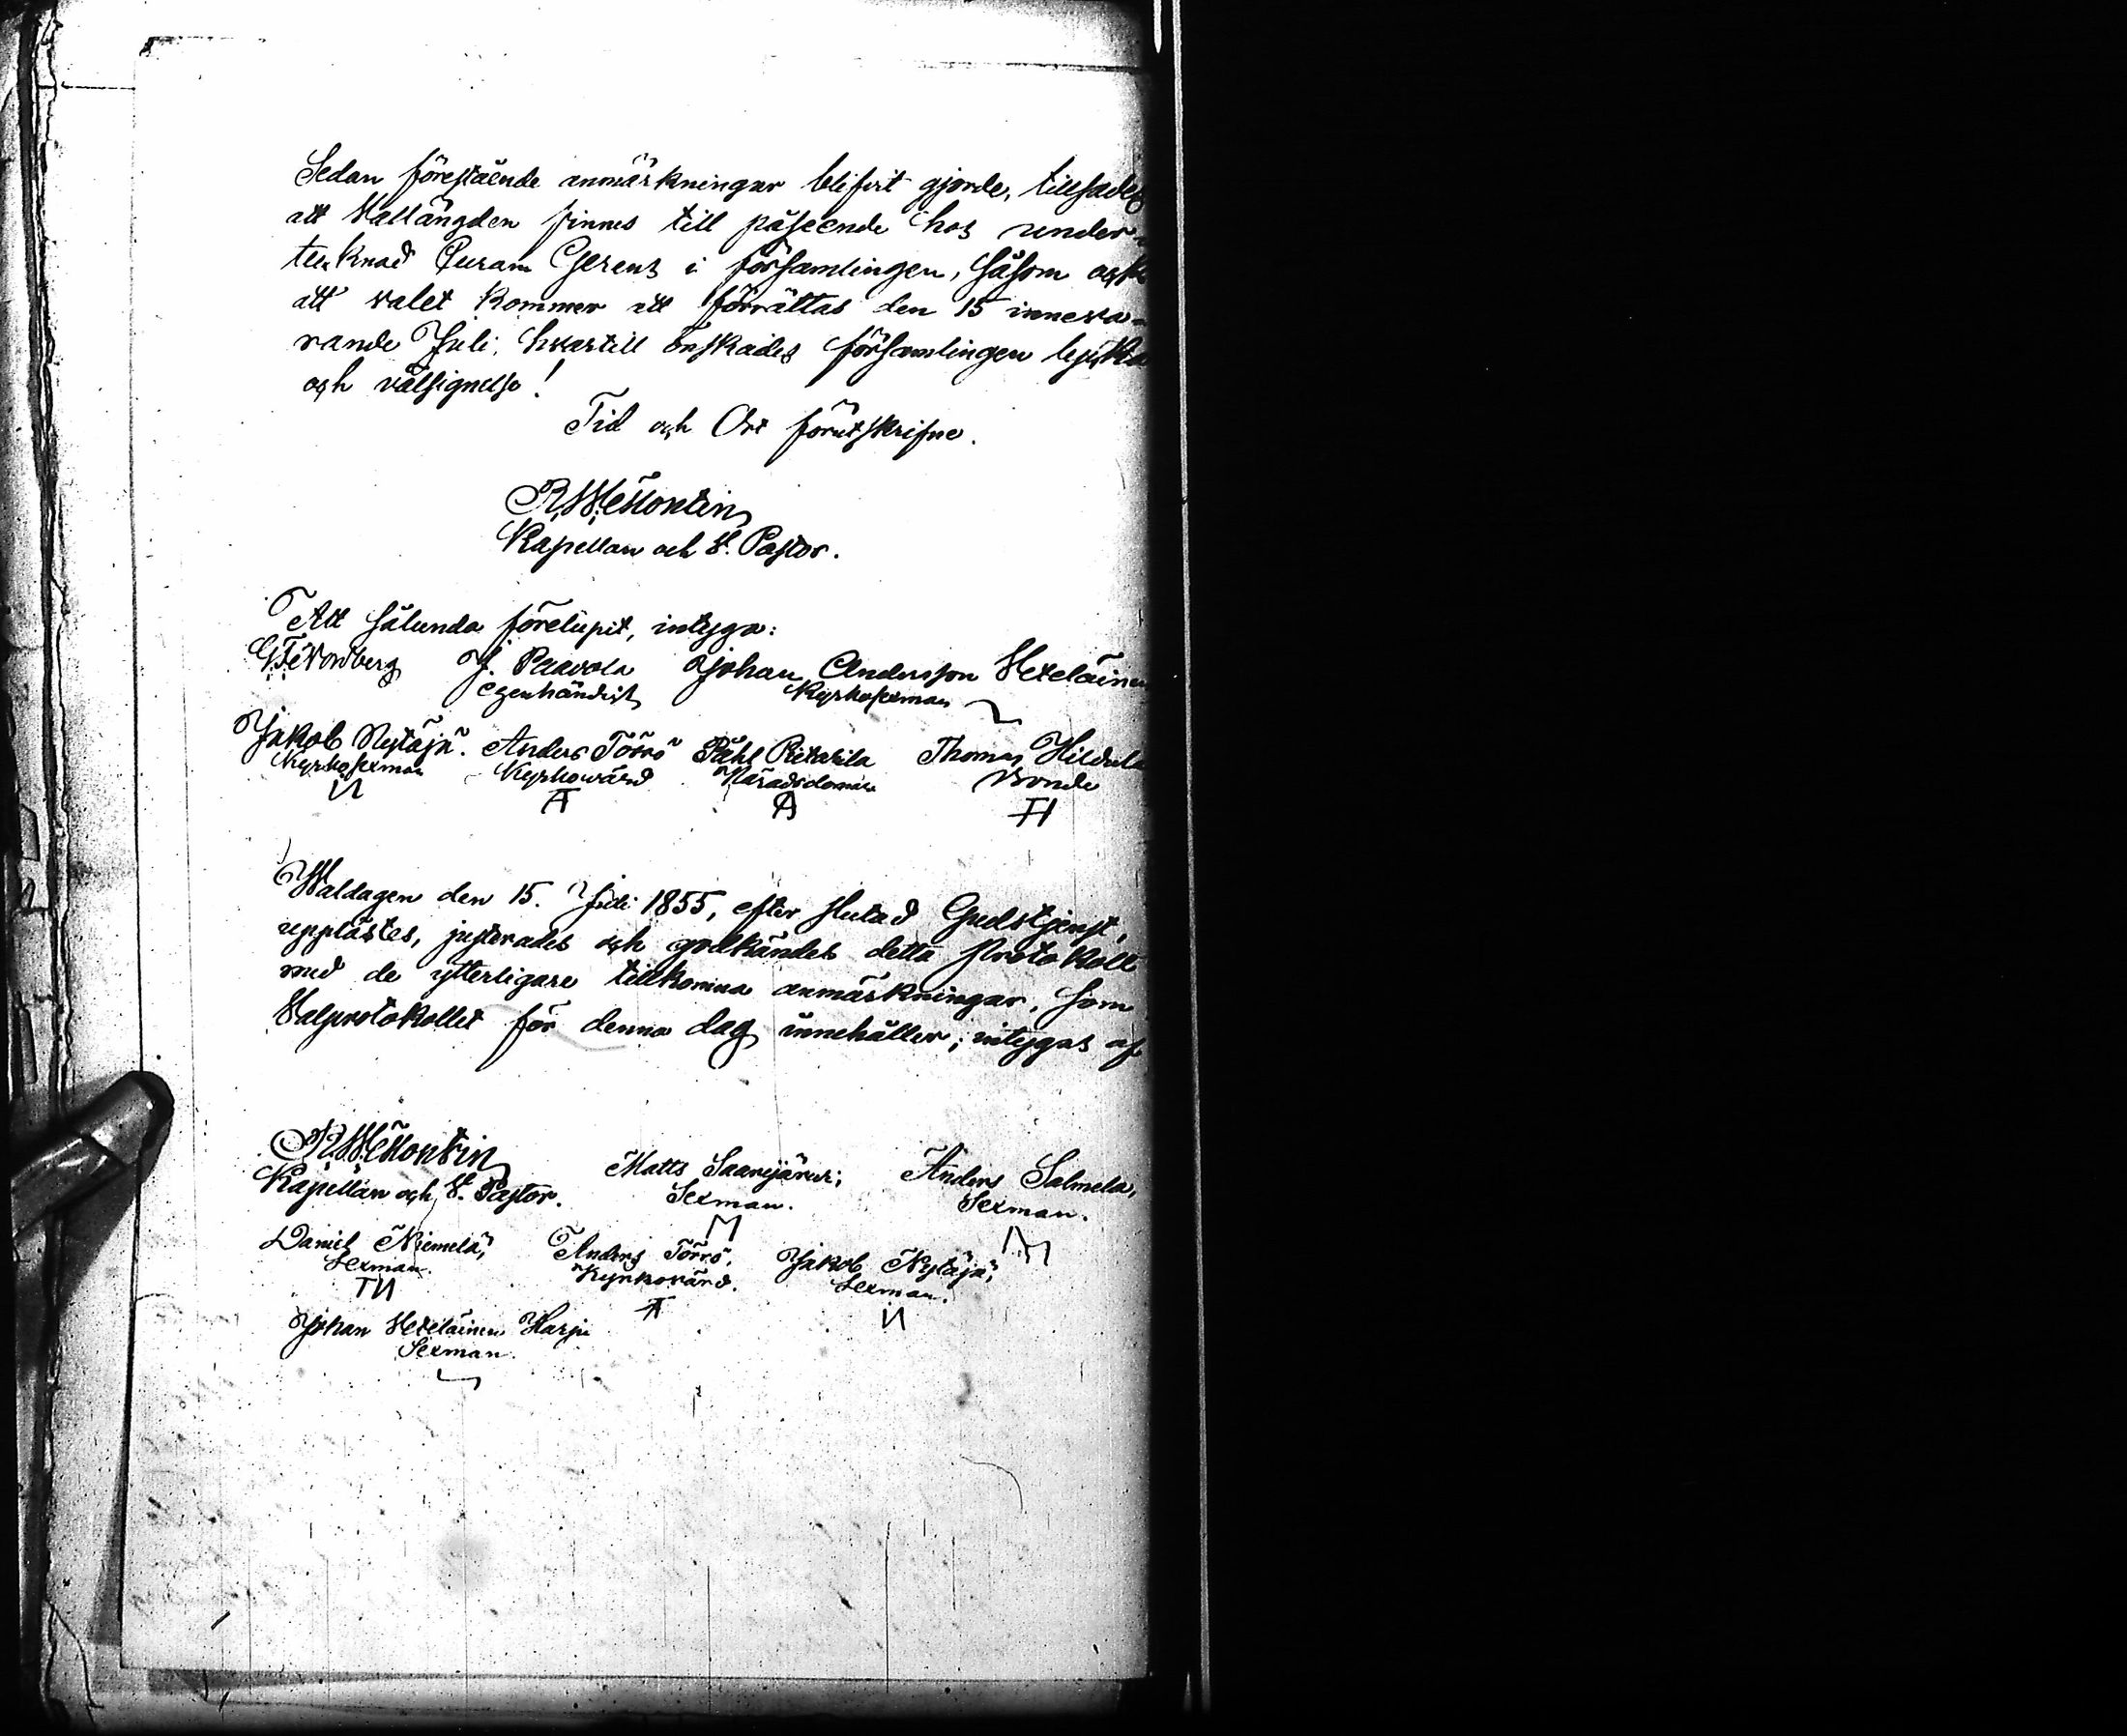 Sedan förestående anmärkningar blifvit gjorde, tillsades
att Vallängden finnes till påseende hos under-
tecknad Curam Gerens i församlingen, såsom ock
att valet kommer att förrättas den 15 inneva-
rande Juli, hvartill önskades församlingen lycka
och välsignelse!
Tid och Ort förutskrifne.
Kapellan och V. Pastor.
Att sålunda förelupit, intyga:
J. Paavola Johan Andersson Heteläinen
egenhändigt Kyrkosexman
Jakob Nytäjä. Anders Törrö Påhl Thomas
Kyrkosexman Kyrkowärd Häradsdomare Bonde
И A TH
Waldagen den 15. Juli 1855, efter slutad Gudstjenst,
upplästes, justerades och godkändes detta Protokoll
med de ytterligare tillkomna anmärkningar, som
Valprotokollet för denna dag innehåller; intygas af
Kapellan och V. Pastor. Matts Saarijärvi; Anders Salmela,
Sexman. Sexman.
M
Daniel Niemelä, Anders Törrö, Jakob Nytäjä,
Sexman. Kyrkovärd. Sexman.
A И
Johan Heteläinen Harju
Sexman.